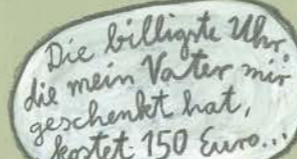 Die billigste Uhr,
die mein Vater mir
geschenkt hat,
kostet 150 Euro...